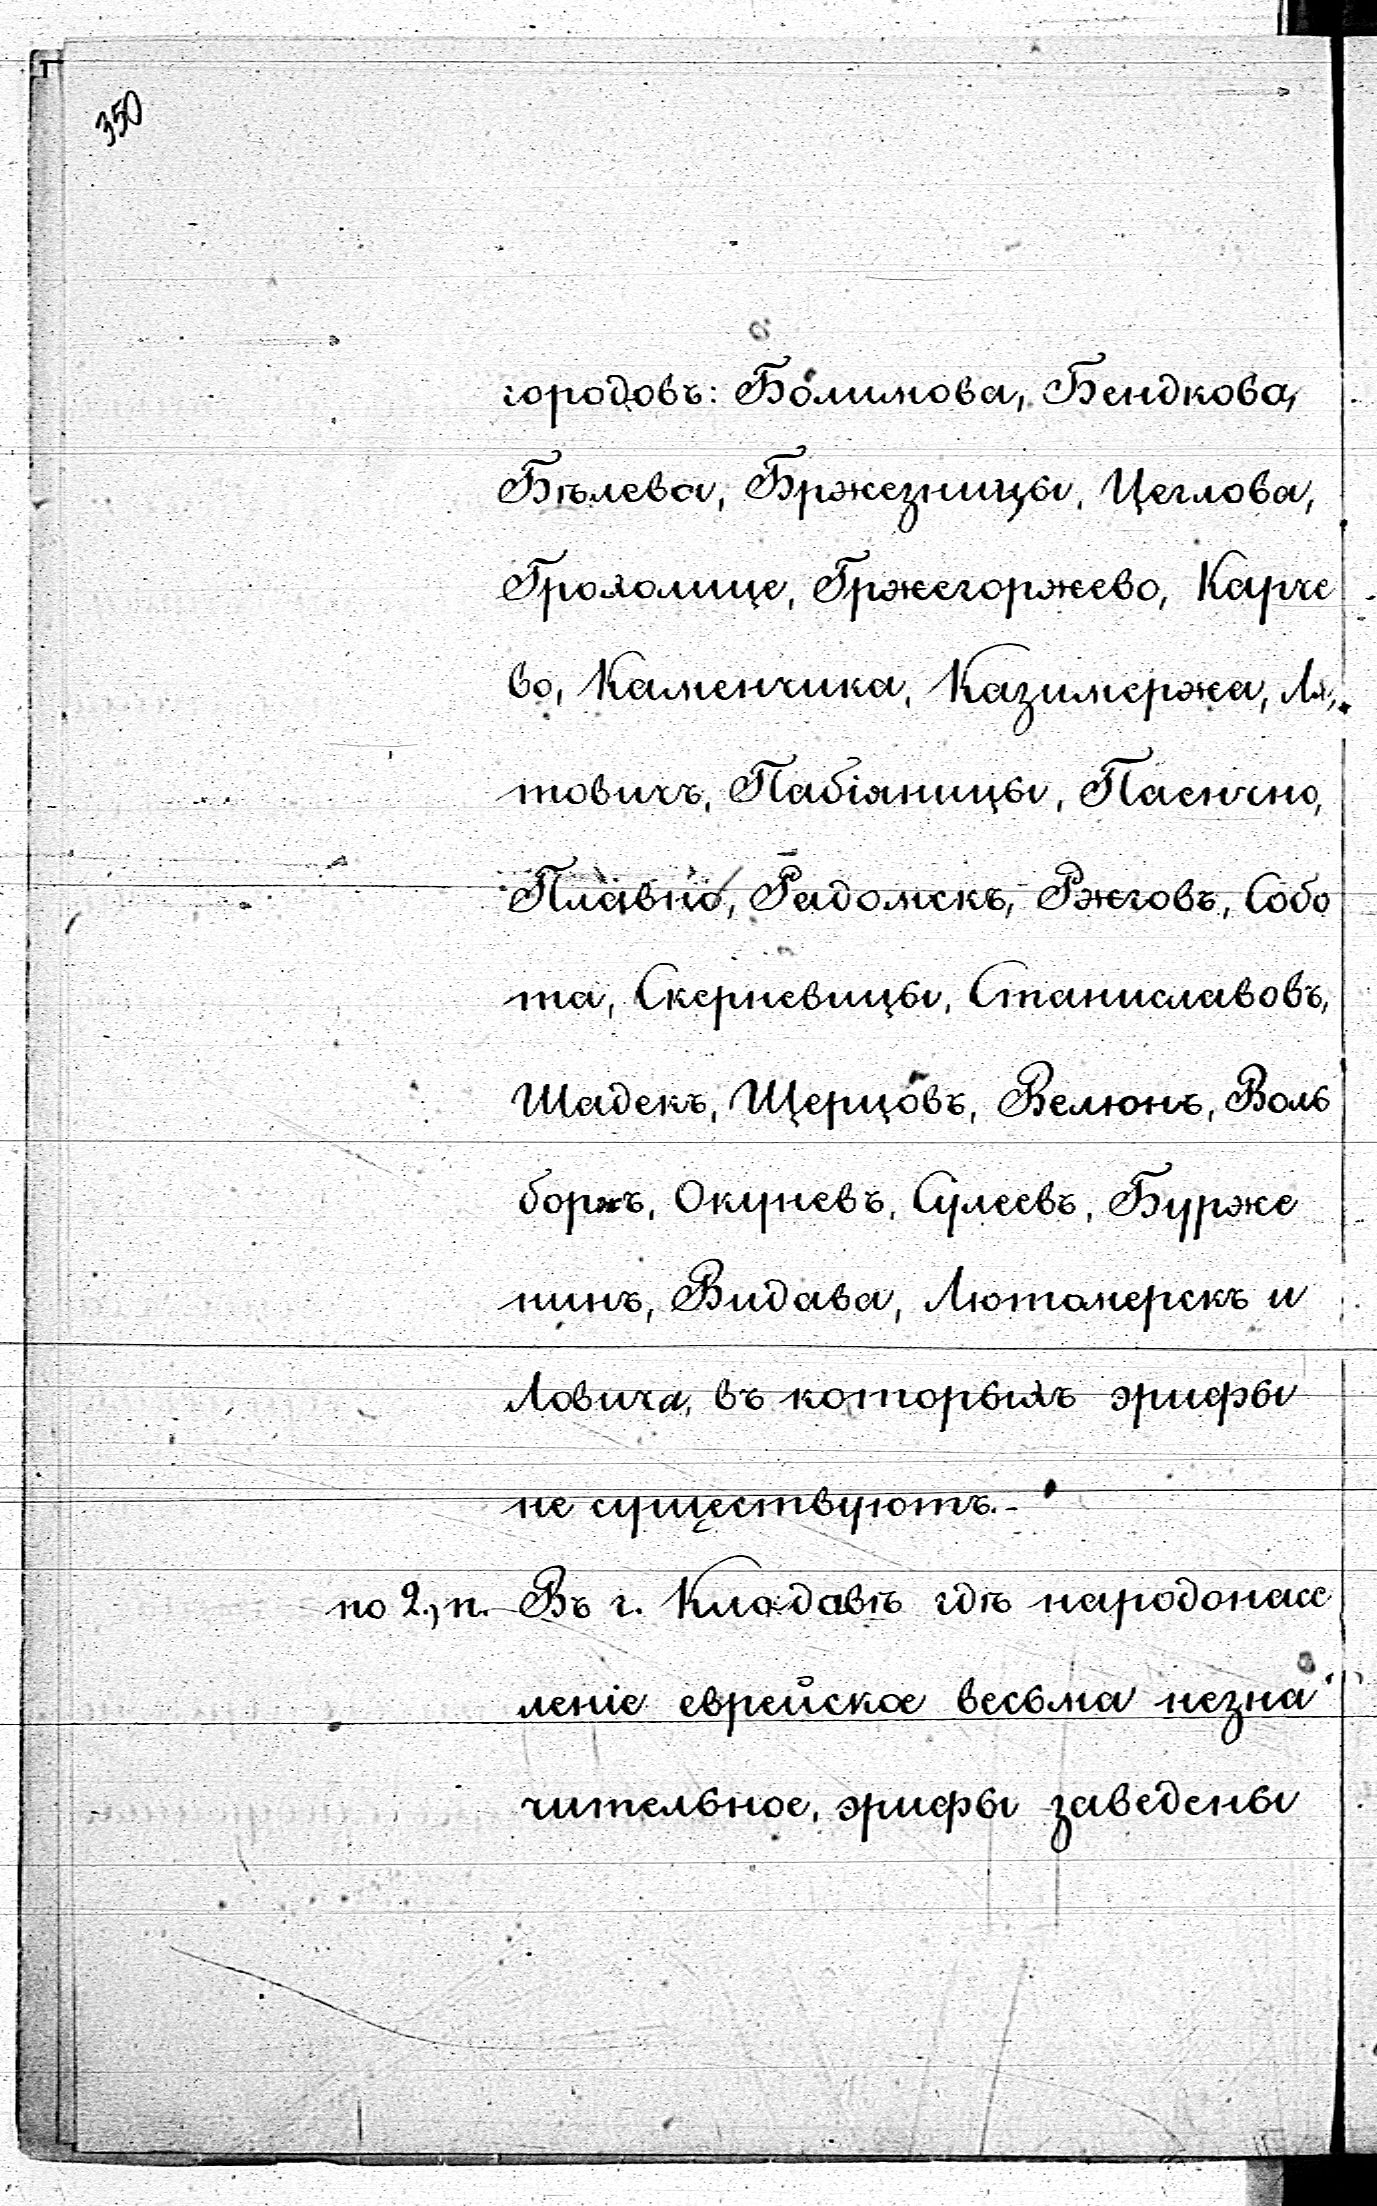 350
городовъ: Болимова, Бендкова,
Бѣлева, Бржезницы, Цеглова,
Грохолице, Гржегоржево, Карче
во, Каменчика, Казимержа, Лю,
товичъ, Пабіяницы, Паенчно,
Плавно, Радомскъ, Ржговъ, Собо
та, Скерневицы, Станиславовъ,
Шадекъ, Щерцовъ, Велюнъ, Воль
боржъ, Окуневъ, Сулеевъ, Бурже
нинъ, Видава, Лютомерскъ и
Ловича, въ которыхъ эрифы
не существуютъ.-
по 2., п. Въ г. Клодавѣ гдѣ народонасе
леніе еврейское весьма незна
чительное, эрифы заведены